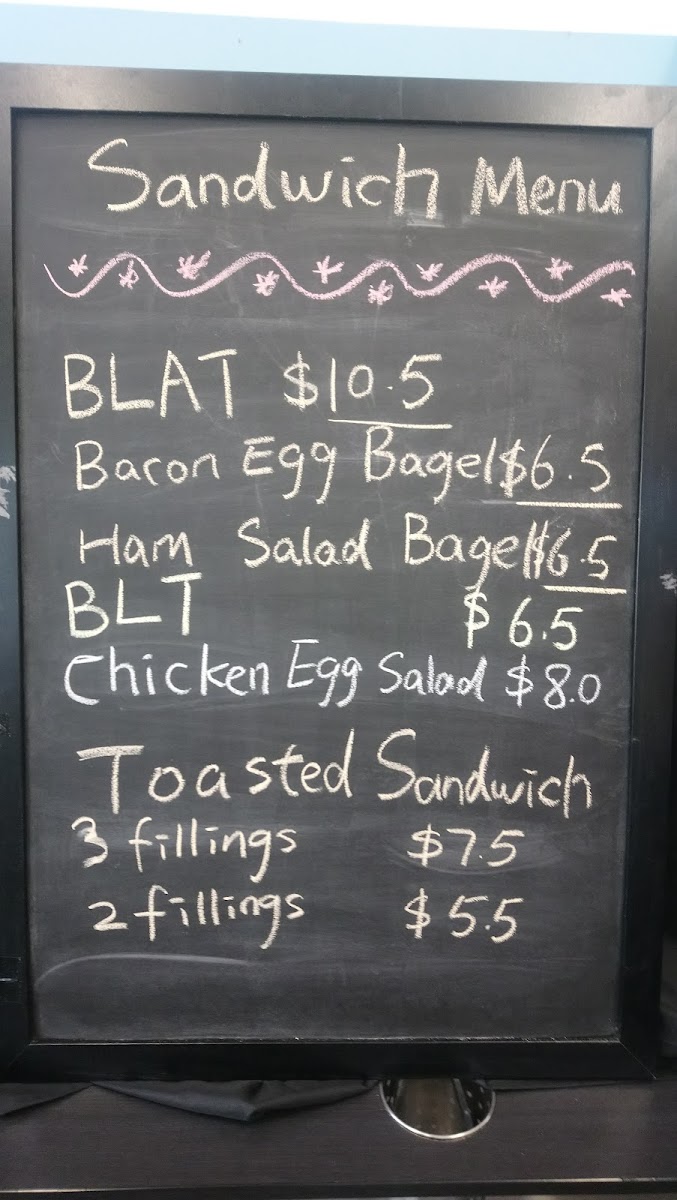 Sandwich Menu
BLAT $10.5
Bacon Egg Bagel $6.5
Ham Salad Bagel $6.5
BLT $6.5
Chicken Egg Salad $8.0
Toasted Sandwich
3 fillings $7.5
2 fillings $5.5